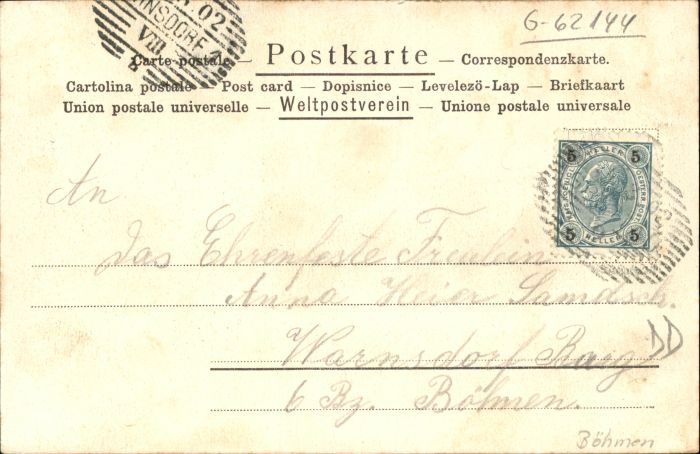 02
RNSDORF
VIII
8
G-62144
Carte postale — Postkarte — Correspondenzkarte.
Cartolina postale — Post card — Dopisnice — Levelezö-Lap — Briefkaart
Union postale universelle — Weltpostverein — Unione postale universale
5 HELLER 5
5 HELLER 5
An
Das Ehrenfeste Freulein
Anna Heier
Warnsdorf
6 Bz. Böhmen.
DD
Böhmen